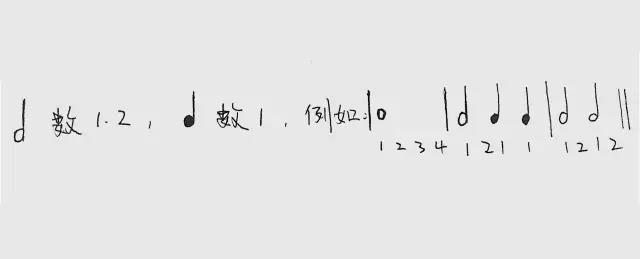 𝅗𝅥 数 1.2, ♩ 数 1, 例如:|𝅝 |𝅗𝅥 ♩ ♩ |𝅗𝅥 𝅗𝅥 ||
1 2 3 4 1 2 1 1 1 2 1 2